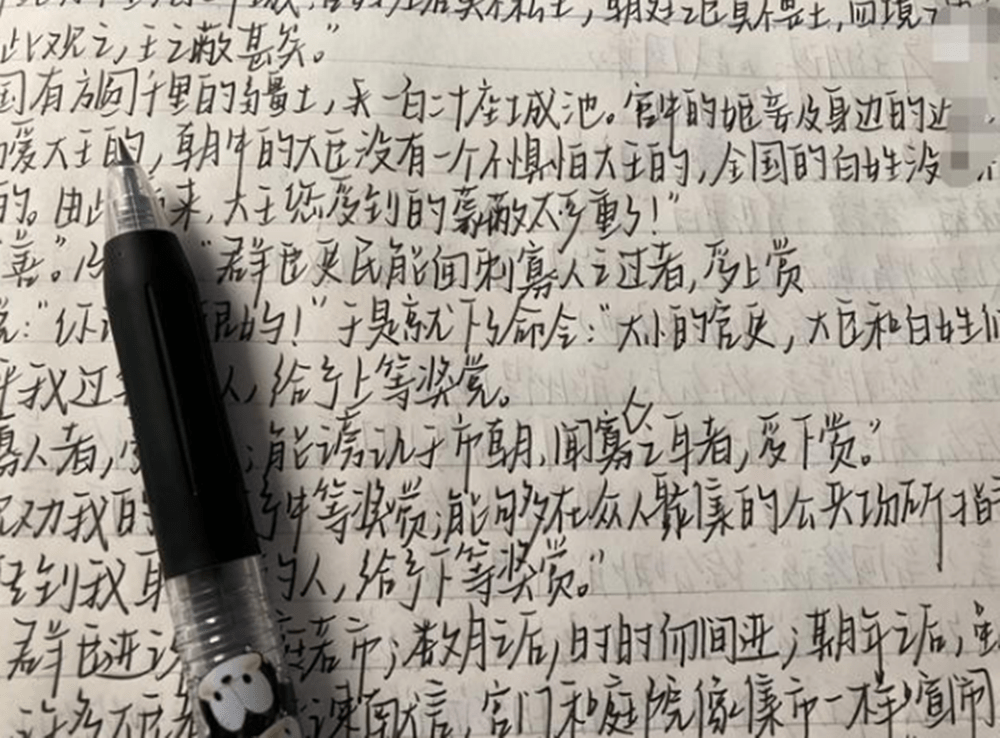 此观之,王之蔽甚矣。"
国有方圆千里的疆土,一百二十座城池。宫中的姬妾及身边的近
爱大王的,朝中的大臣没有一个不惧怕大王的,全国的百姓没
的。由此 来,大王您受到的蒙蔽太严重了!"
善。" "群臣吏民能面刺寡人之过者,受上赏
:"你 的!"于是就下了命令:"大小的官吏,大臣和百姓们
我过 人,给予上等奖赏。
寡人者, ;能谤讥于市朝,闻寡人之耳者,受下赏。"
劝我的 中等奖赏;能够在众人聚集的公共场所指
到我耳 的人,给予下等奖赏。"
群臣进 若市;数月之后,时时而间进;期年之后,虽
许多大臣 谏言,宫门和庭院像集市一样喧闹